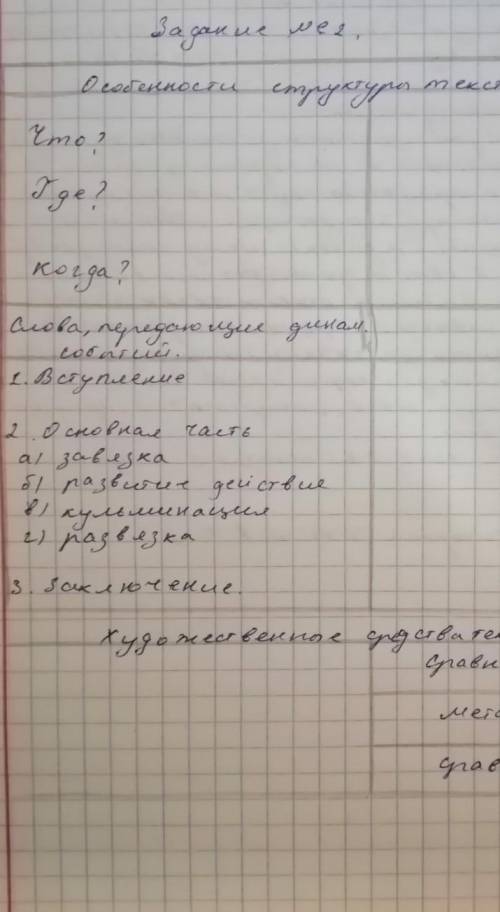 Задание № 2.
Особенности структуры текст
Что?
Где?
Когда?
Слова, передающие динам.
событий.
1. Вступление
2. Основная часть
а) завязка
б) развитие действия
в) кульминация
г) развязка
3. Заключение.
Художественные средства тек
Сравн
Мета
Срав